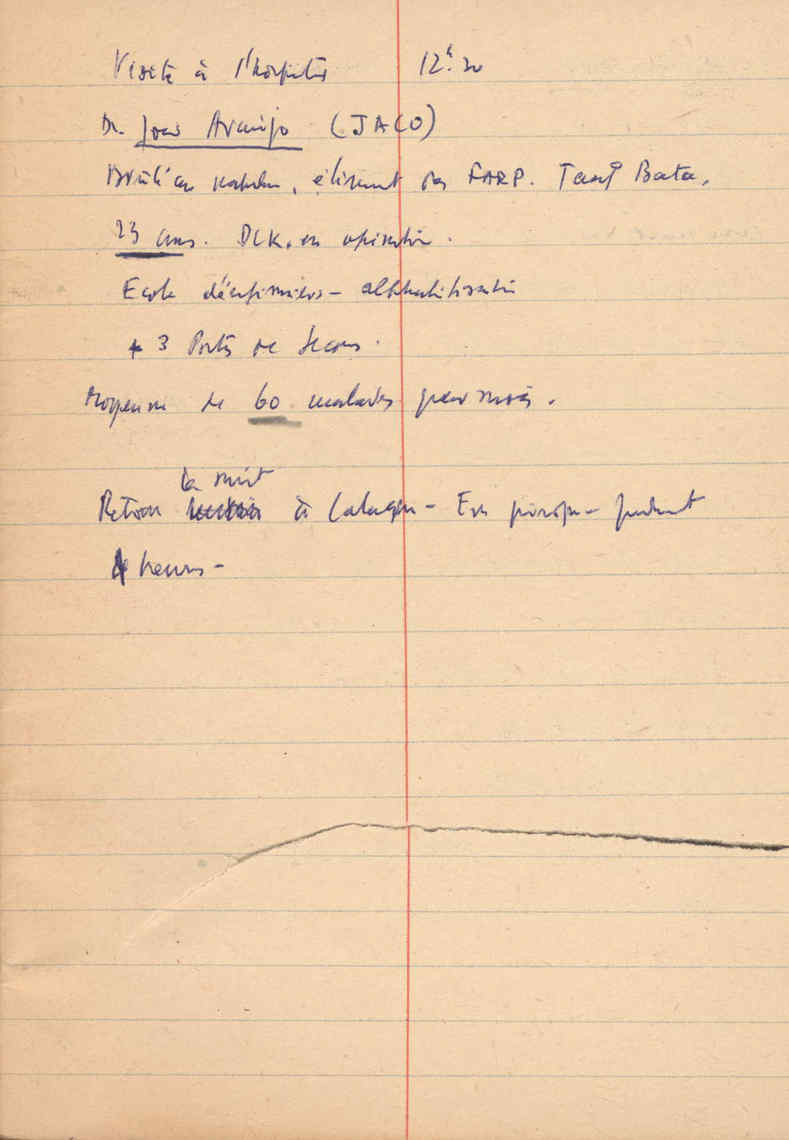 Visite à l'hôpital 12h.30
Dr. Joao Araujo (JACO)
Brûlé au napalm, élément des FARP. Tant Bata,
23 ans. DCK, en opération.
Ecole d'infirmiers - alphabétisation
+ 3 Postes de Secours.
Moyenne de 60 malades par mois.
la nuit
Retour à Calaque - En pirogue pendant
4 heures -